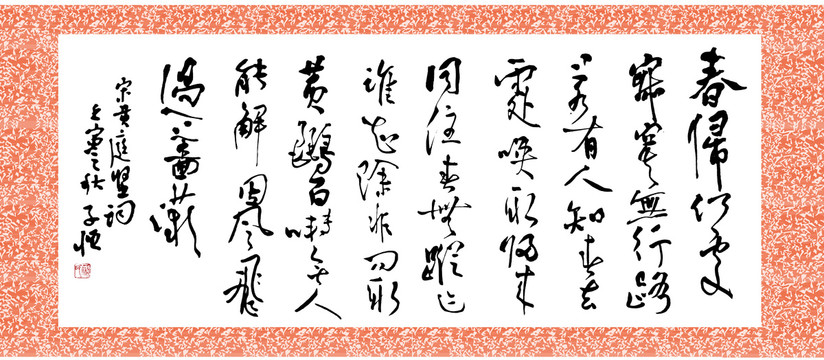 春歸何處
寂寞無行路
若有人知春去
處喚取歸來
同住春無蹤迹
誰知除非問取
黃鸝百囀無人
能解因風飛
過薔薇
宋黃庭堅詞
之秋子恒